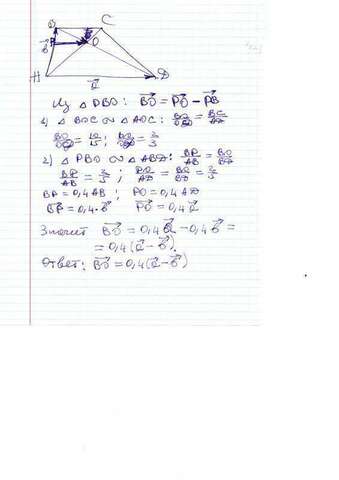 B C
P O
b⃗
A D
a⃗
Из △ PBO: BO⃗ = PO⃗ − PB⃗
1) △ BOC ∾ △ AOD: BO/OD = BC/AD
BO/OD = 10/15; BO/OD = 2/3
2) △ PBO ∾ △ ABD: BP/AB = BO/BD
BP/AB = 2/5; PO/AD = BO/BD = 2/5
BP = 0,4 AB; PO = 0,4 AD
BP⃗ = 0,4·b⃗ PO⃗ = 0,4 a⃗
Значит BO⃗ = 0,4 a⃗ − 0,4 b⃗ =
= 0,4(a⃗ − b⃗).
Ответ: BO⃗ = 0,4(a⃗ − b⃗)